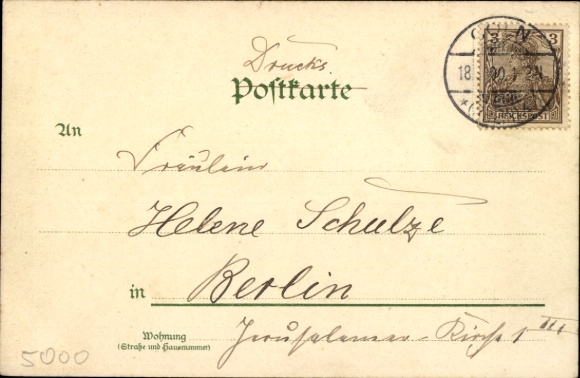 Drucks.
Postkarte
3 3
18.
REICHSPOST
An
Fräulein
Helene Schulze
in Berlin
Wohnung
(Straße und Hausnummer)
Jerusalemer-Kirche 1 III
5000